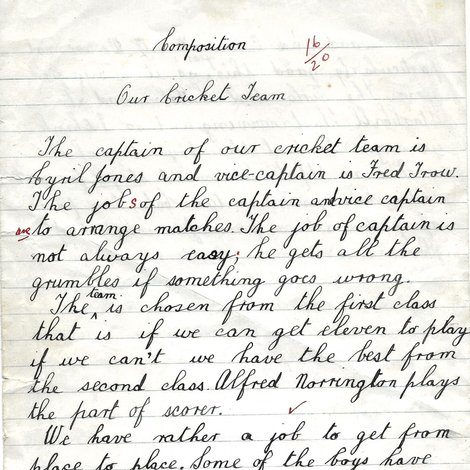 Composition
16/20
Our Cricket Team
The captain of our cricket team is
Cyril Jones and vice-captain is Fred Trow.
The jobs of the captain and vice captain
are to arrange matches. The job of captain is
not always easy; he gets all the
grumbles if something goes wrong.
The team is chosen from the first class
that is if we can get eleven to play
if we can't we have the best from
the second class. Alfred Norrington plays
the part of scorer.
We have rather a job to get from
place to place. Some of the boys have